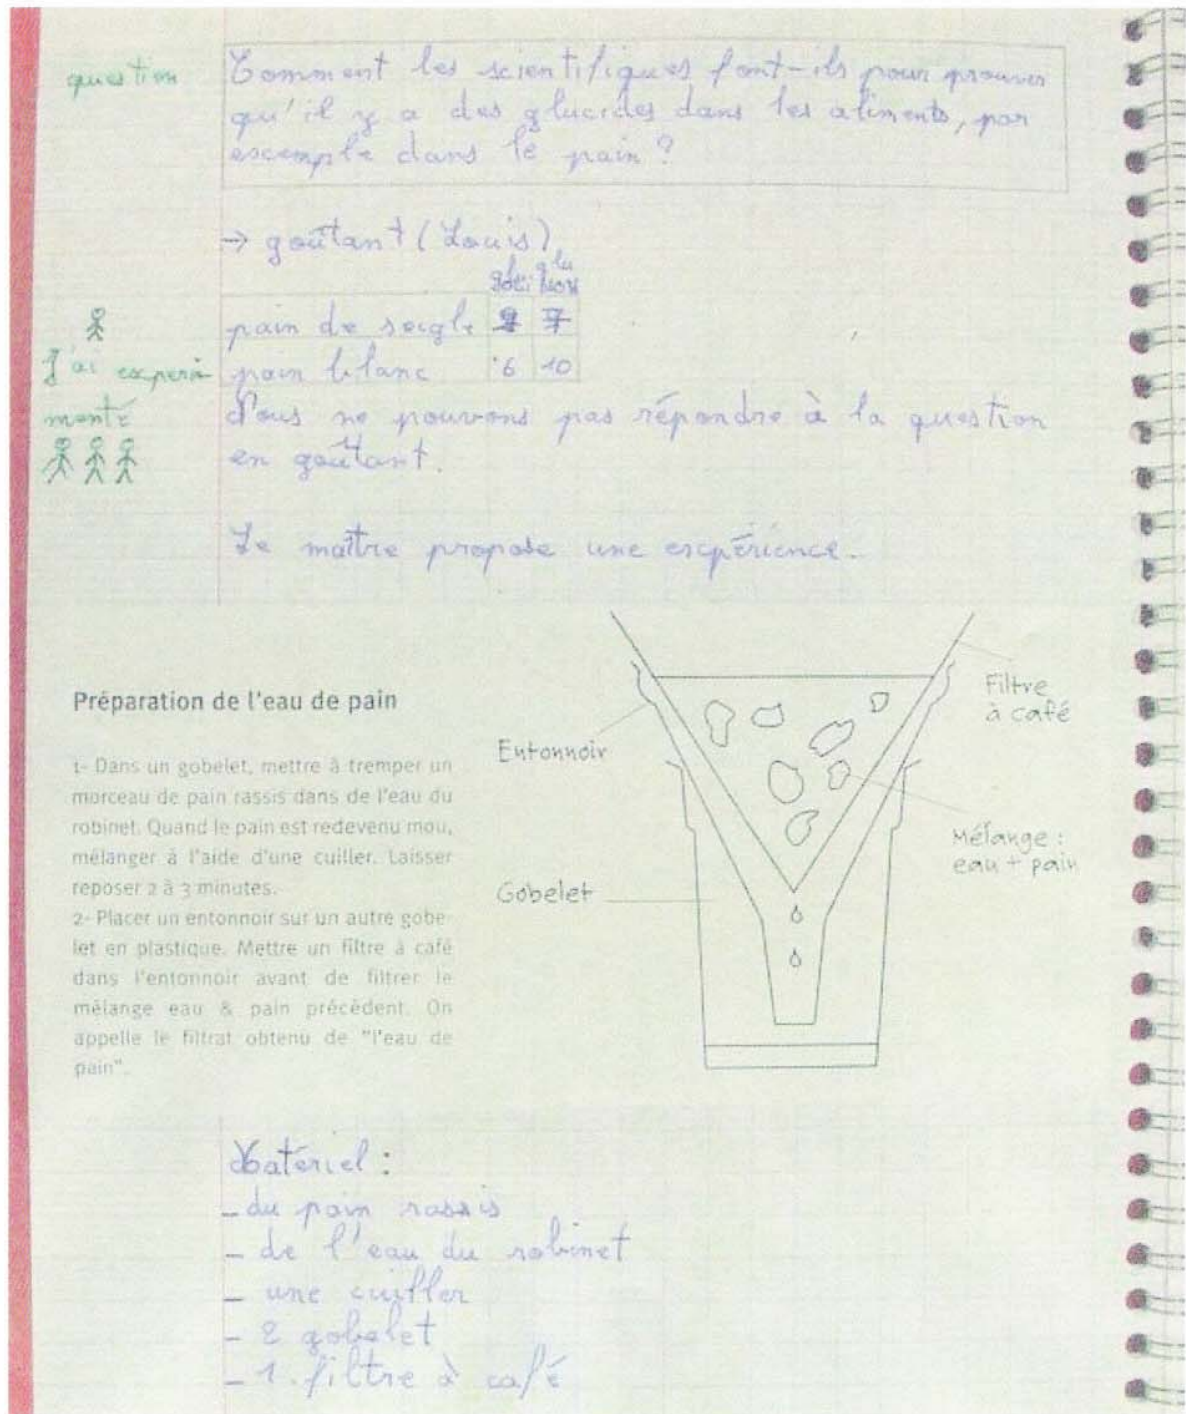 question
Comment les scientifiques font-ils pour prouver
qu'il y a des glucides dans les aliments, par
exemple dans le pain ?
→ goûtant (Louis)
pain de seigle 7
J'ai expéri
menté
pain blanc 6 10
Nous ne pouvons pas répondre à la question
en goûtant.
Le maître propose une expérience.
Préparation de l'eau de pain
1- Dans un gobelet, mettre à tremper un
morceau de pain rassis dans de l'eau du
robinet. Quand le pain est redevenu mou,
mélanger à l'aide d'une cuiller. Laisser
reposer 2 à 3 minutes.
2- Placer un entonnoir sur un autre gobe-
let en plastique. Mettre un filtre à café
dans l'entonnoir avant de filtrer le
mélange eau & pain précédent. On
appelle le filtrat obtenu de "l'eau de
pain".
Entonnoir
Filtre
à café
Mélange :
eau + pain
Gobelet
Matériel :
- du pain rassis
- de l'eau du robinet
- une cuiller
- 2 gobelet
- 1 filtre à café